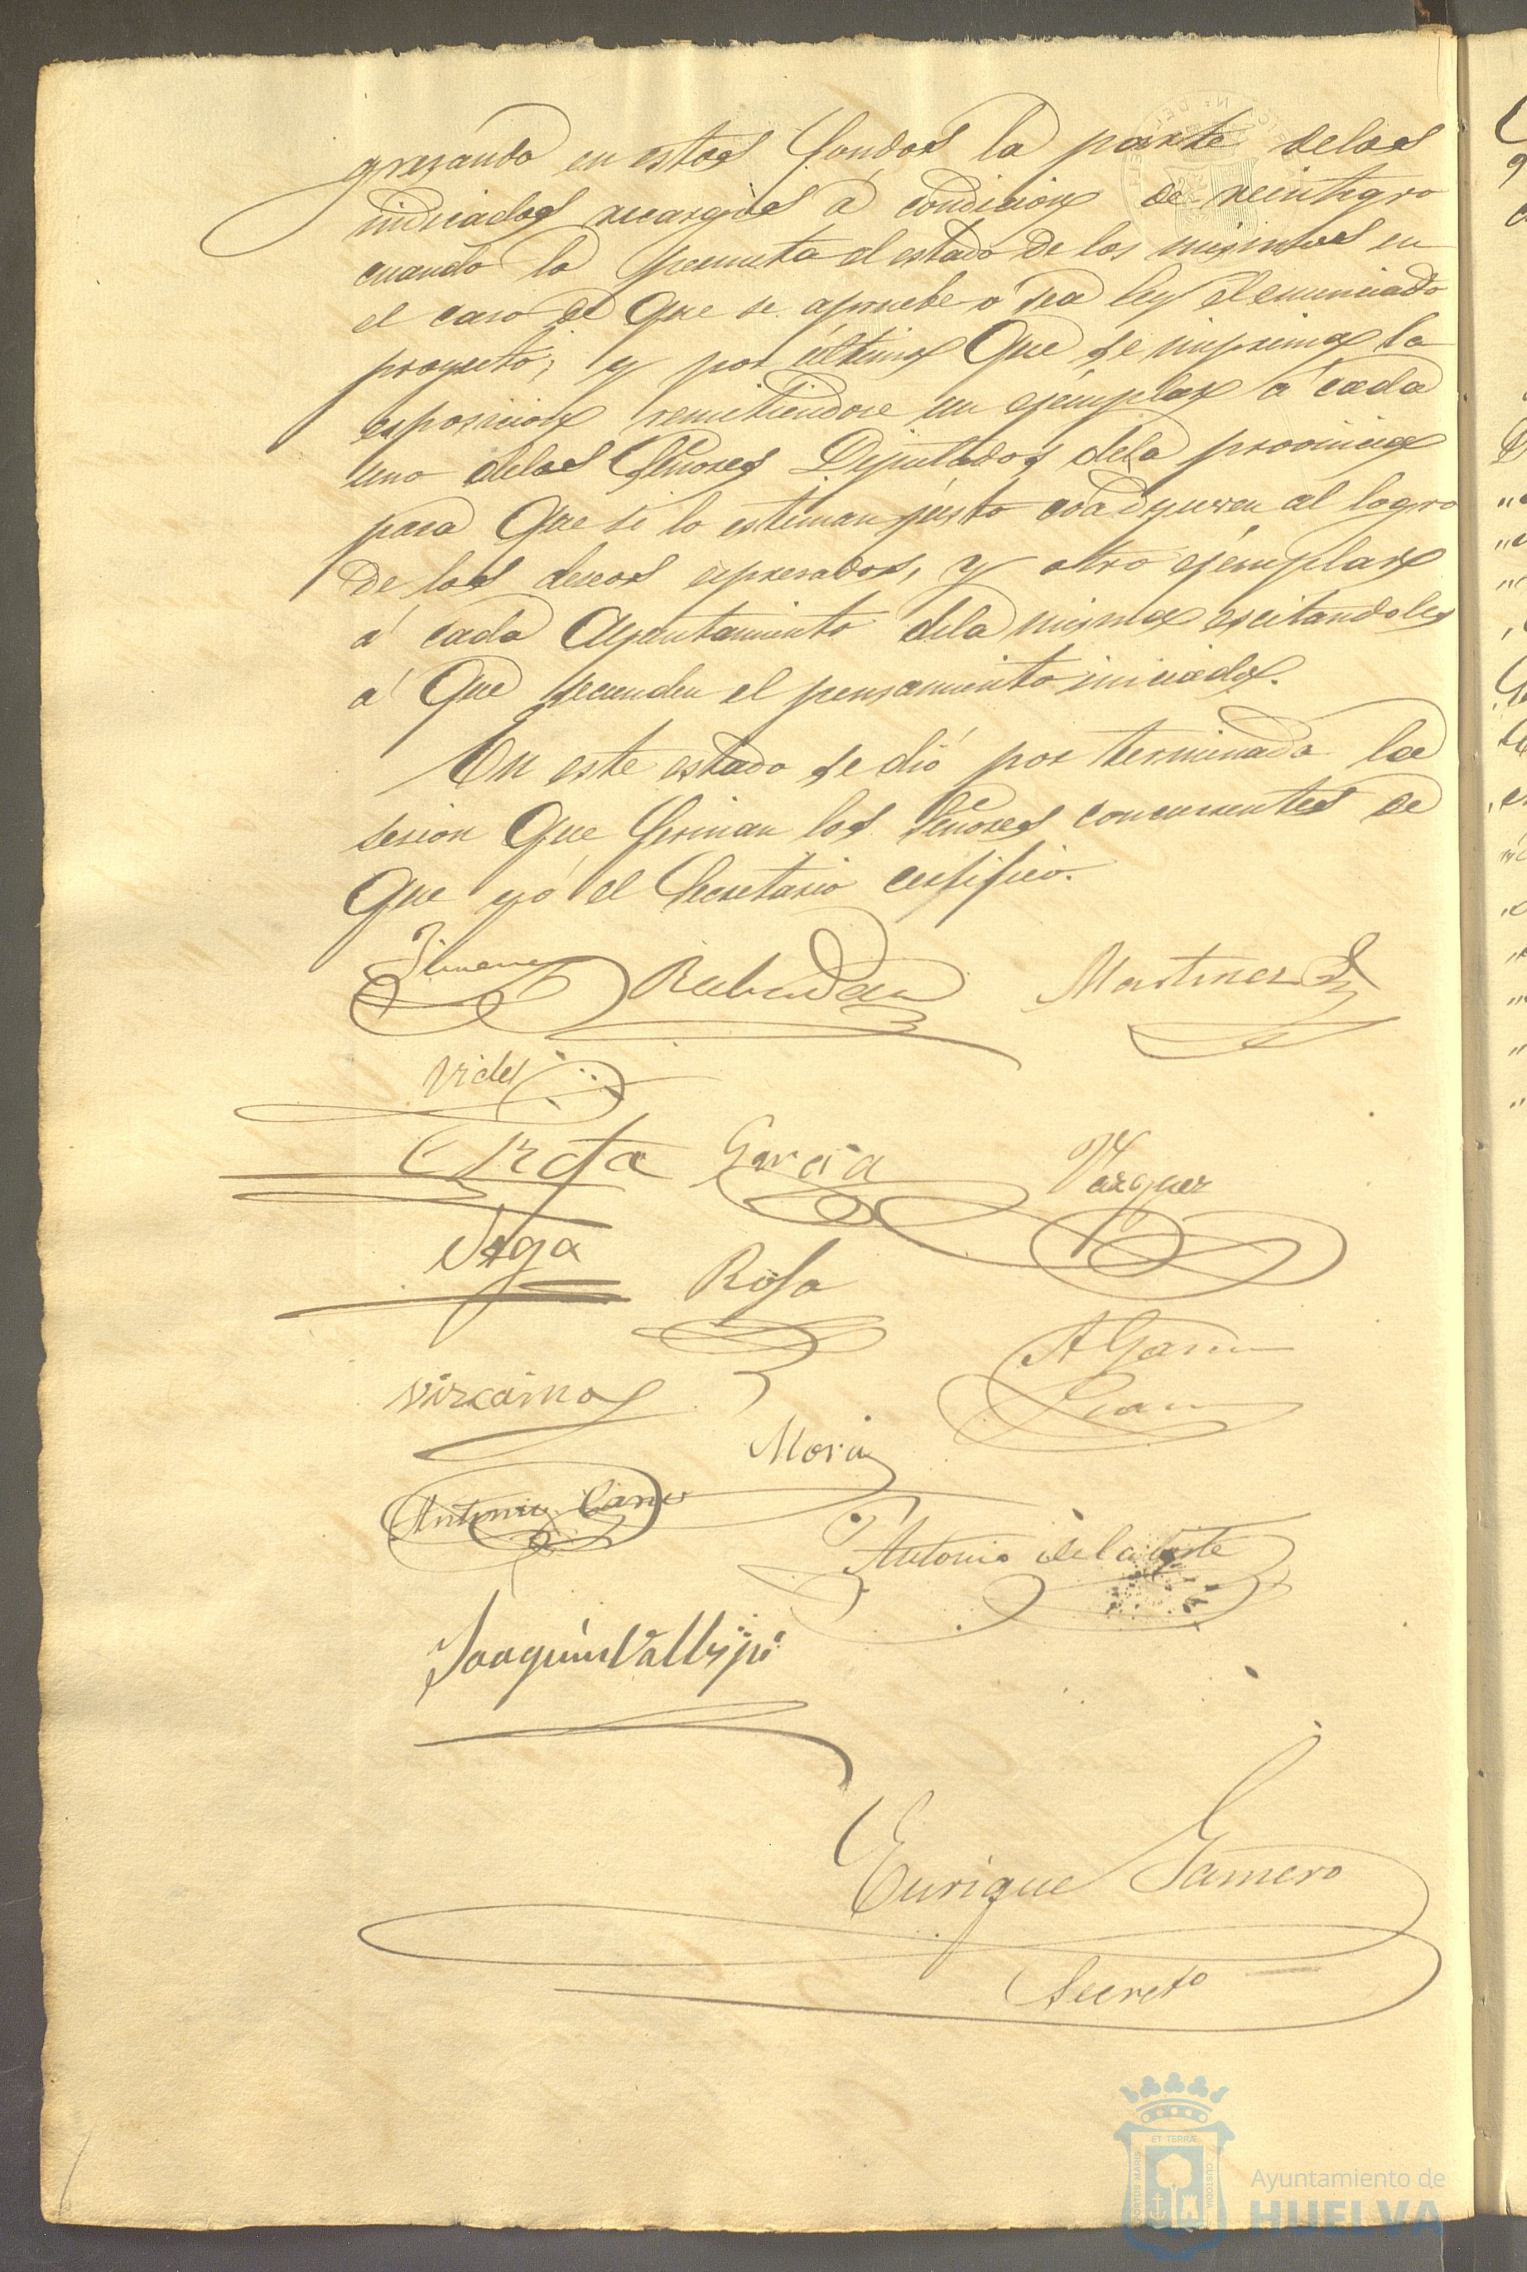 gresando en estos fondos la parte delos
indicados recargos á condicion de reintegro
cuando lo permita el estado de los mismos en
el caso de que se apruebe ó sea ley el enunciado
proyecto; y por último que se imprima la
esposicion remitiendose un ejemplar á cada
uno delos Señores Diputados dela provincia
para que si lo estiman justo coadyuven al logro
de los deseos espresados, y otro ejemplar
á cada Ayuntamiento dela misma escitandoles
á que secunden el pensamiento iniciado.
En este estado se dió por terminada la
sesion que firman los Señores concurrentes de
que yó el Secretario certifico.
Jimenez Rabadan Martinez
Vides
Orta Garcia Vazquez
Vega Rosa
A Garcia
Vizcaino
Mora
Antonio Cano
Antonio de la Corte
Joaquin Vallejo
Enrique Gamero
Secret.º
ET TERRÆ
PORTUS MARIS
CUSTODIA
Ayuntamiento de
HUELVA